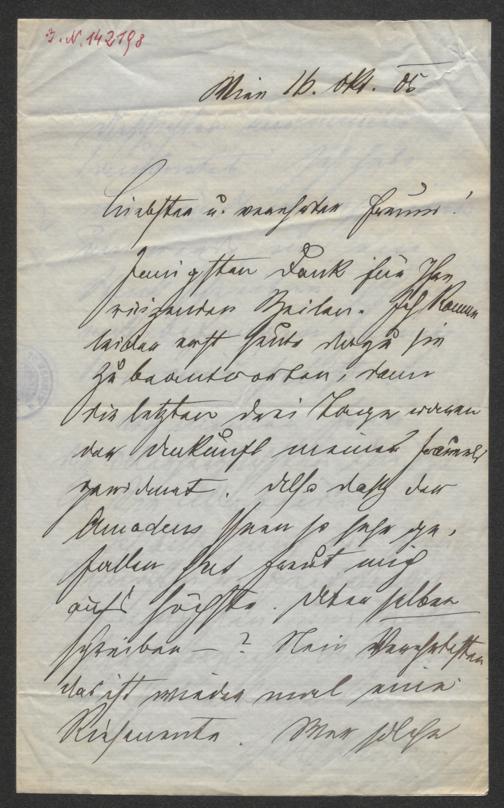 J. N. 142198
Wien 16. Okt. 05
Liebster u. verehrter Freund!
Innigsten Dank für Ihre
reizenden Zeilen. Ich komme
leider erst heute dazu sie
zu beantworten, denn
die letzten drei Tage waren
der Ankunft meines
gewidmet. Also daß der
Amadeus Ihnen so sehr ge-
fallen hat freut mich
aufs höchste. Aber selber
schreiben — ? Nein Verehrtester
das ist wieder mal eine
. Wer solche